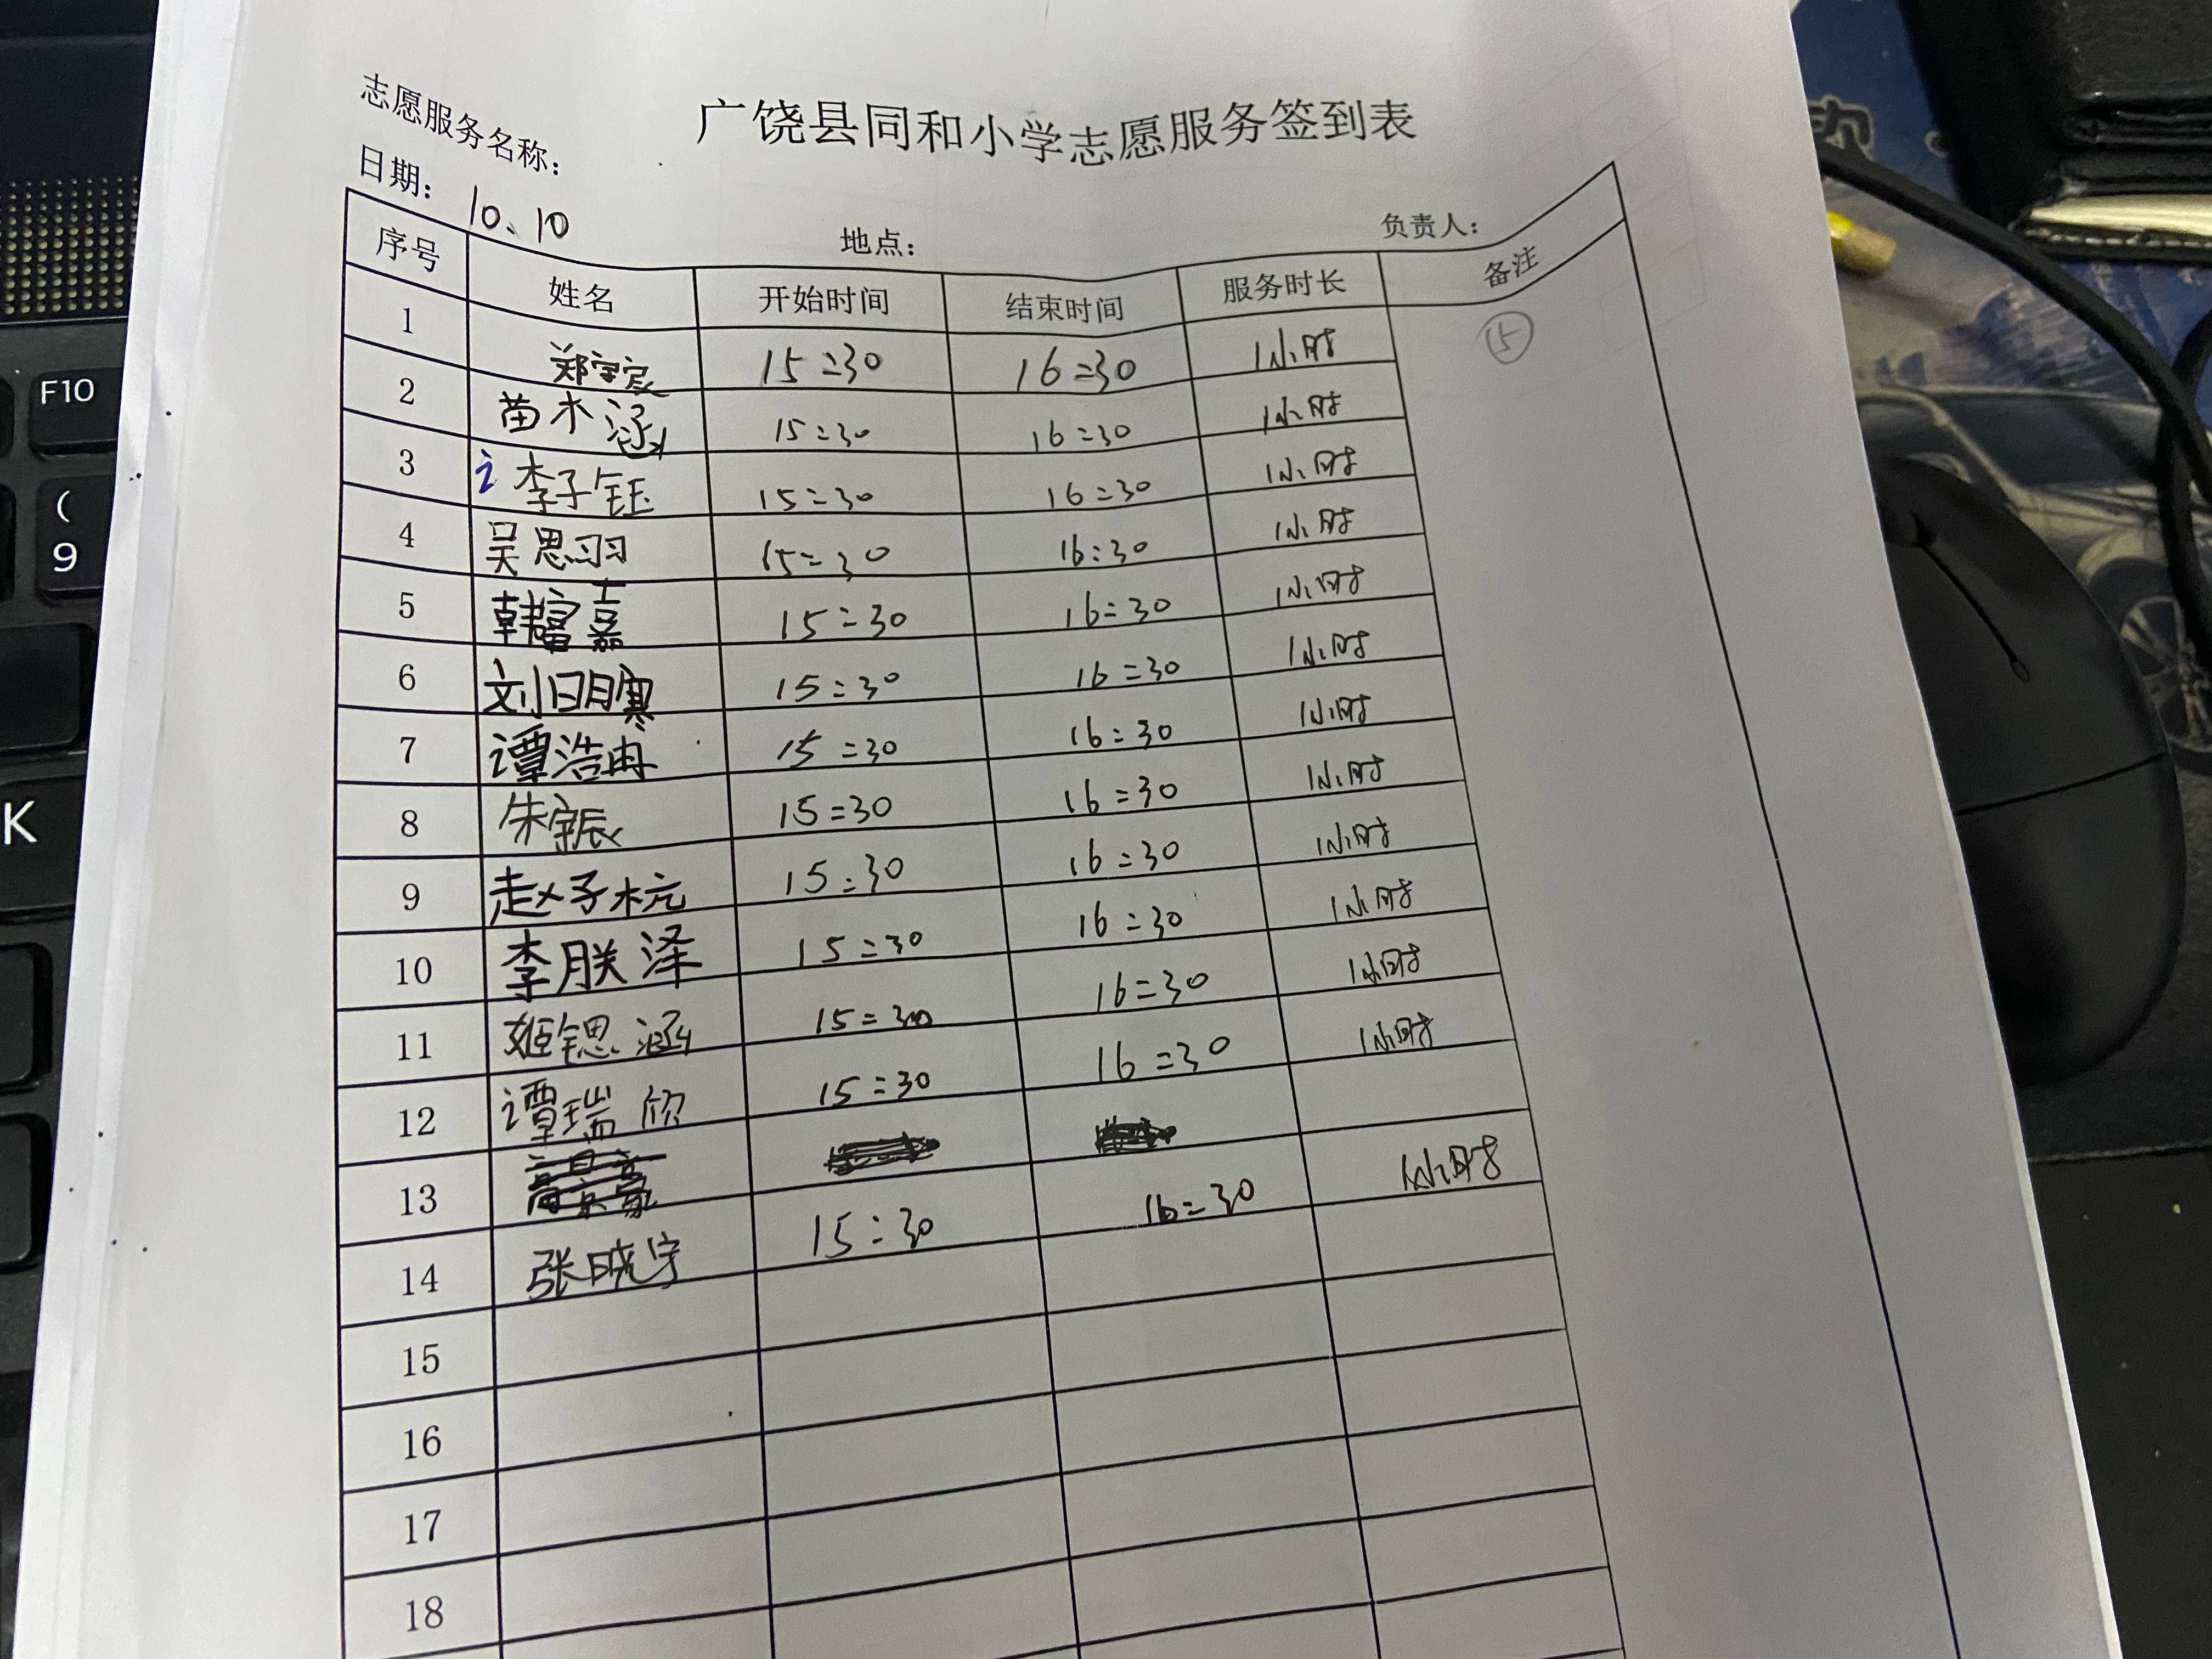 广饶县同和小学志愿服务签到表
志愿服务名称：
日期： 10、10 地点： 负责人：
序号 姓名 开始时间 结束时间 服务时长 备注
1 郑宇宸 15:30 16:30 1小时 ⑮
2 苗木涵 15:30 16:30 1小时
3 李子钰 15:30 16:30 1小时
4 吴思羽 15:30 16:30 1小时
5 韩富嘉 15:30 16:30 1小时
6 刘明寒 15:30 16:30 1小时
7 谭浩冉 15:30 16:30 1小时
8 朱宇辰 15:30 16:30 1小时
9 赵子杬 15:30 16:30 1小时
10 李朕泽 15:30 16:30 1小时
11 姬锶涵 15:30 16:30 1小时
12 谭瑞欣 15:30 16:30 1小时
13
14 张晓宇 15:30 16:30 1小时
15
16
17
18
F10
(
9
K